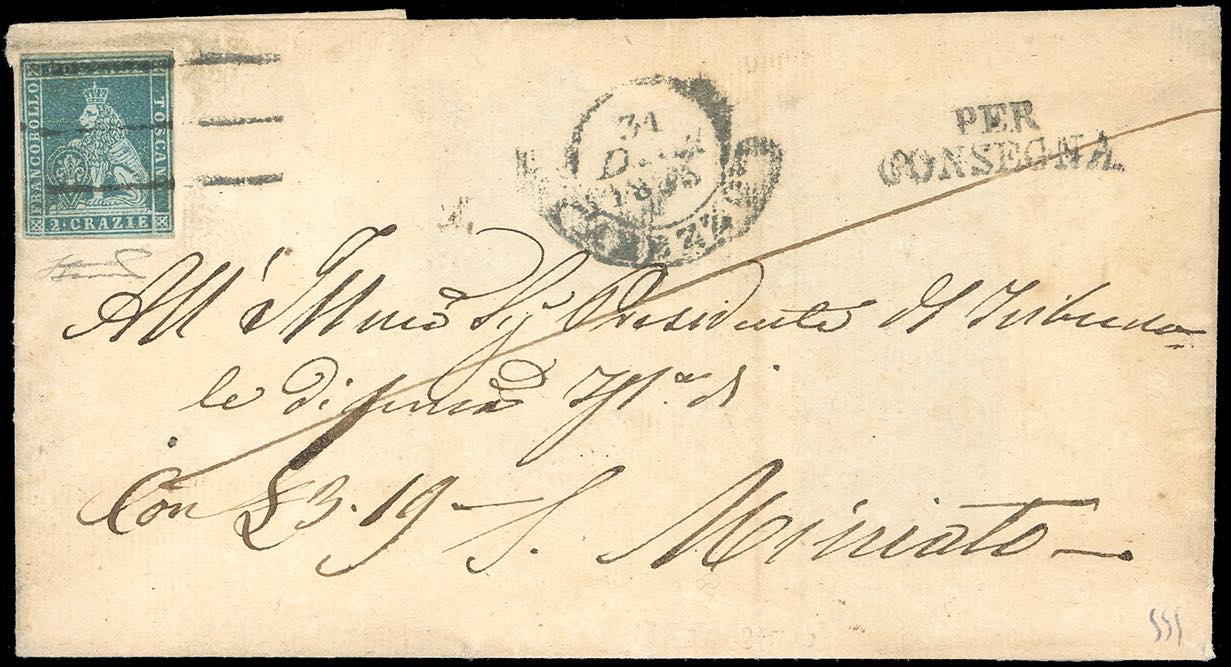 FRANCOBOLLO
TOSCAN
2·CRAZIE
31
PER
CONSEGNA
All' Illmo Sig Presidente del Tribuna=
le di prima Istza di
Con £3.19– S. Miniato–